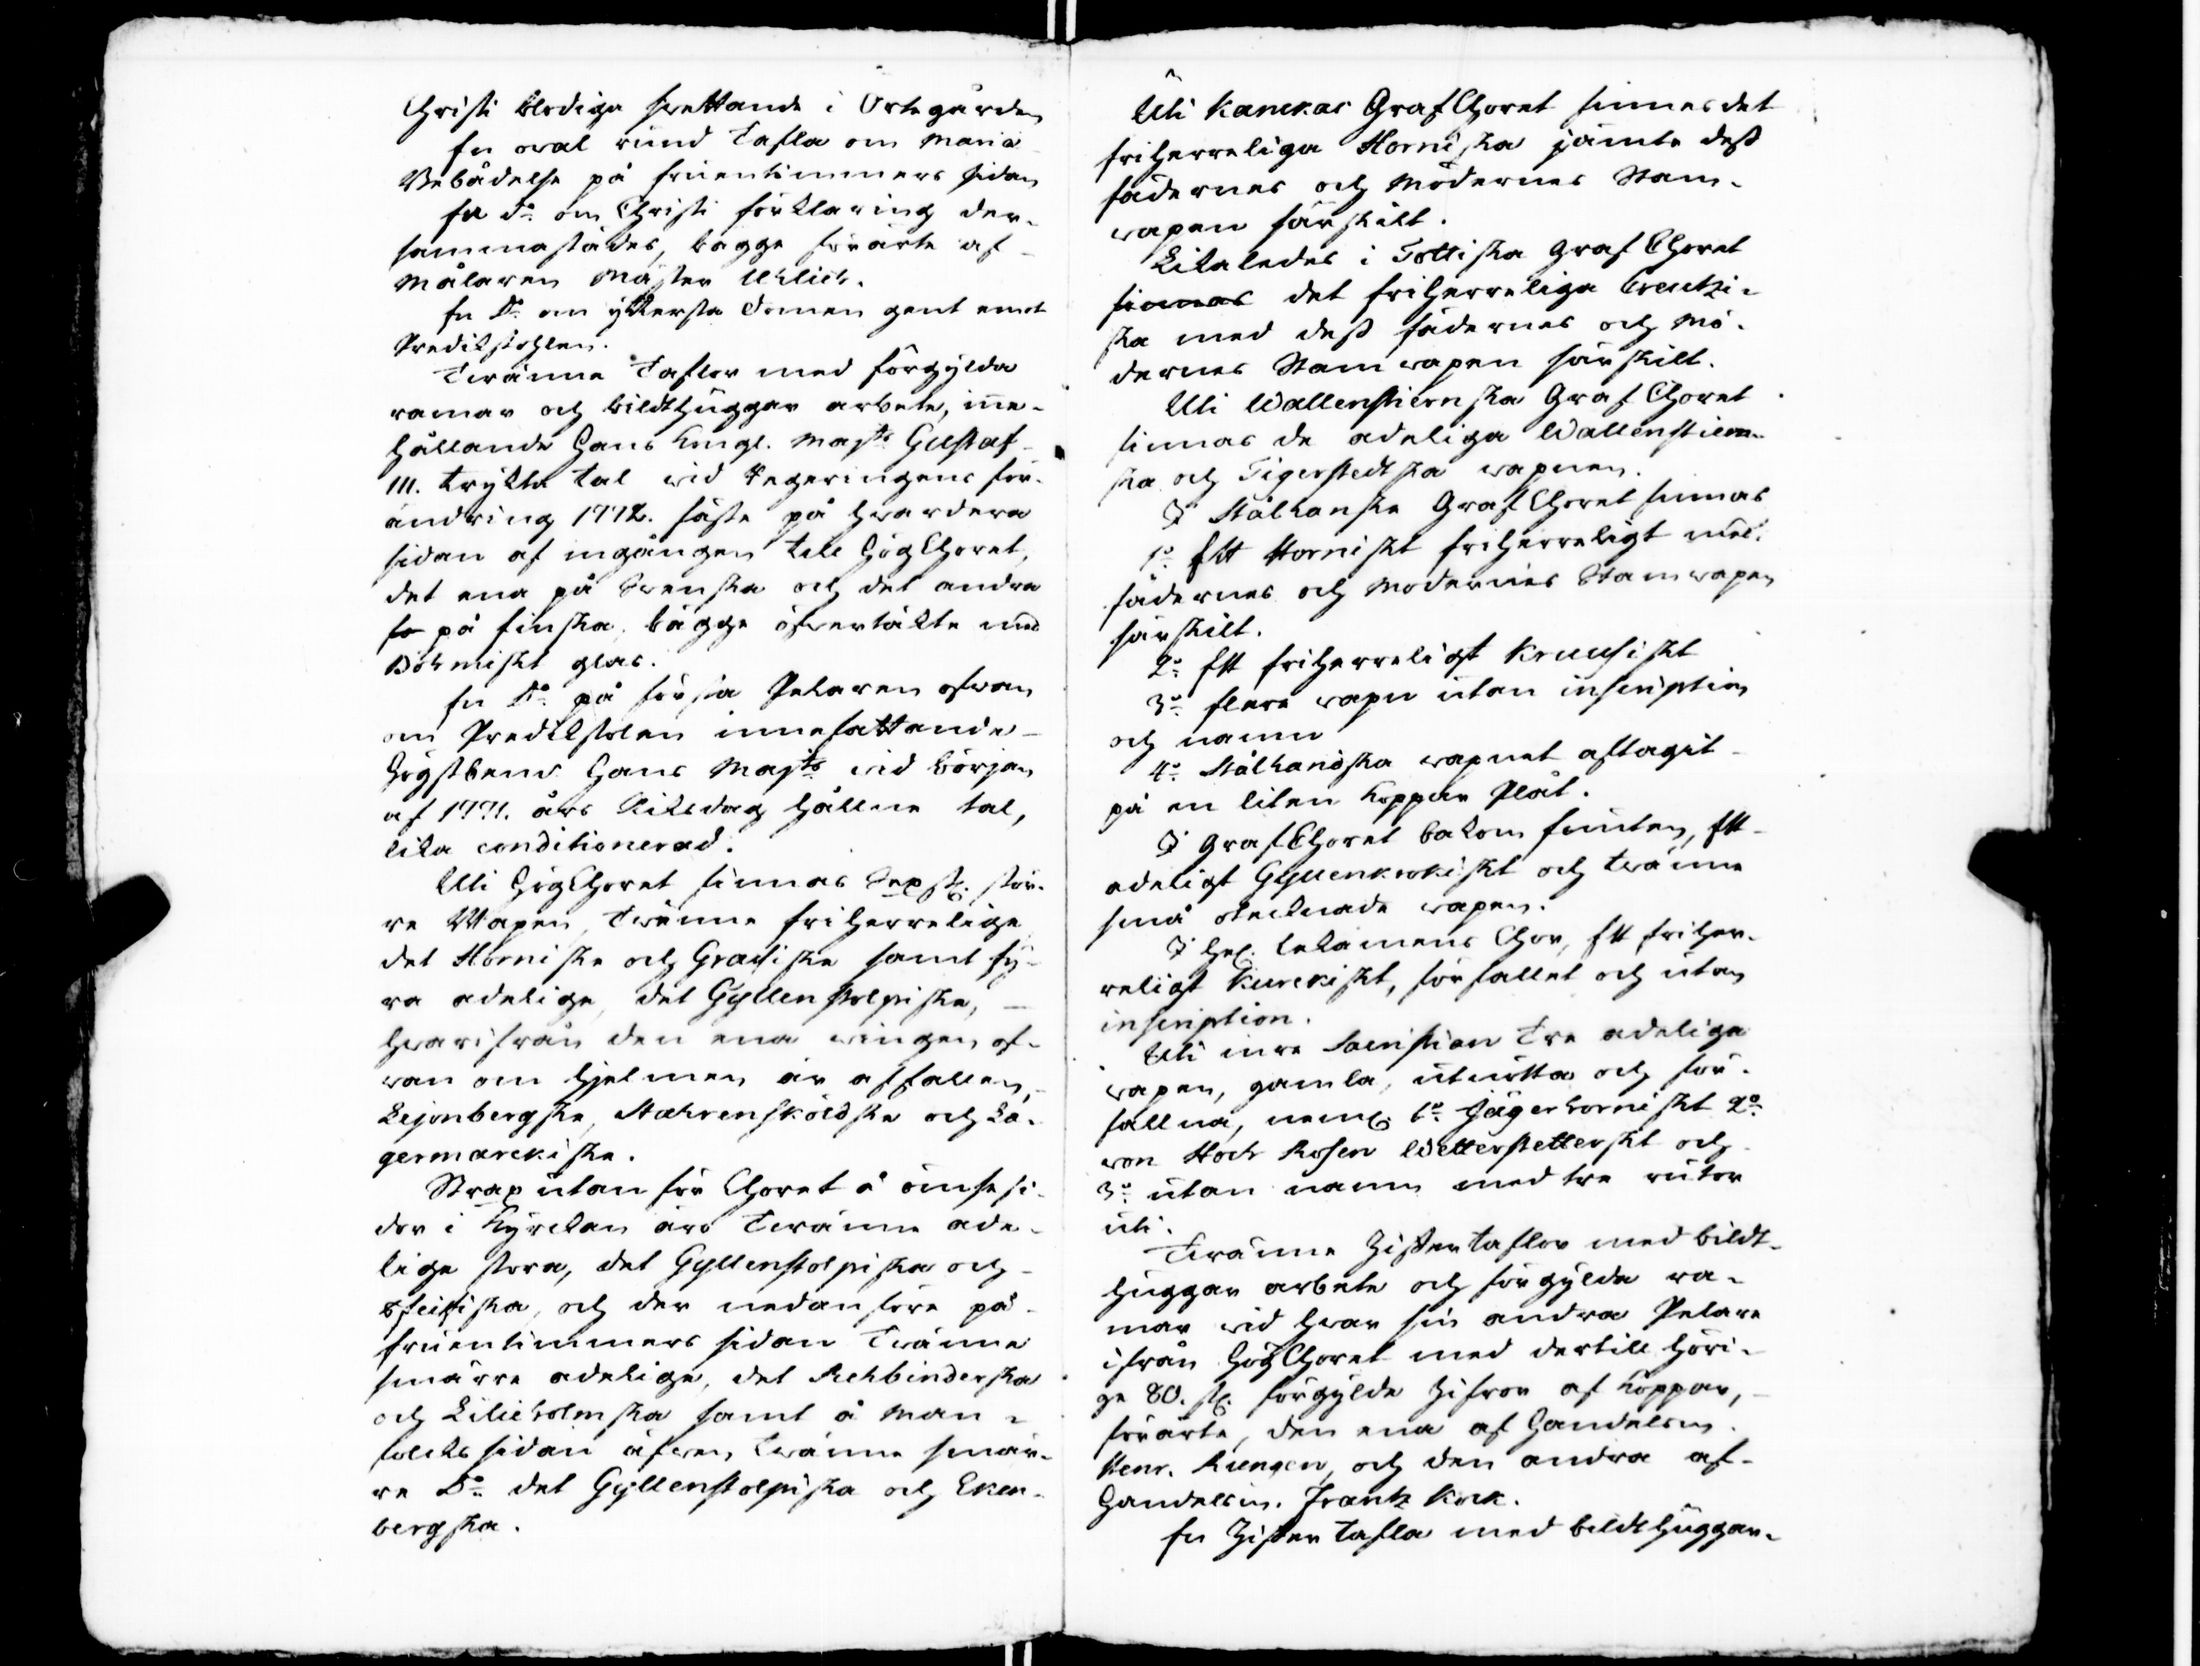 Christi blodiga swettande i Örtegården
En oval rund Tafla om Mariæ
Bebådelse på fruentimmers sidan
En D:o om Christi förklaring der-
sammastädes, bägge förärte af
Målaren Mäster Uhlich.
En D:o om yttersta Domen gent emot
Predikstohlen.
Twänne Taflor med förgylda
ramar och bildthuggar arbete, inne-
hållande Hans Kongl. Maj:ts Gustaf
III. trykta tal wid Regeringens för-
ändring 1772. fäste på hwardera
sidan af ingången till HögChoret,
det ena på Swenska och det andra
på finska, bägge öfwertäkte med
Böhmiskt glas.
En D:o på första Pelaren ofwan
om Predikstolen innefattande
Högstbem:te Hans Maj:ts wid början
af 1771. års Riksdag hållne tal,
lika conditionerad.
Uti HögChoret finnas Sex st. stör-
re Wapen, Twänne friherrelige
det Horniske och Grasiske samt fy-
ra adelige, det Gyllenstolpiske,
hwarifrån den ena wingen of-
wan om hjelmen är affallen,
Lejonbergske, Stahrensköldske och La-
germarckiske.
Strax utan för Choret å ömse si-
dor i Kyrckan äro Twänne ade-
lige stora, det Gyllenstolpiska och
Speitziska, och der nedanföre på
fruentimmers sidan Twänne
smärre adelige, det Rehbinderska
och Lilieholmska samt å Man-
folcks sidan äfwen Twänne smär-
re D:o det Gyllenstolpiska och Eken-
bergska.
Uti Kanckas GrafChoret finnes det
friherreliga Horniska jämte dess
fädernes och Mödernes Stam-
wapen särskilt.
Likaledes i Tottiska GrafChoret
finnas det friherreliga Creutzi-
ska med dess fädernes och Mö-
dernes Stamwapen särskilt.
Uti Wallenstiernska GrafChoret
finnas de adeliga Wallenstiern-
ska och Tigerstedtska wapnen.
I Stålhanske GrafChoret finnas
1:o Ett Horniskt friherreligt med
fädernes och Modernes Stamwapen
särskilt.
2:o Ett friherreligt Kruusiskt
3:o flere wapn utan inscription
och namn
4:o Stålhandska wapnet aftagit
på en liten Koppar Plåt.
I GrafChoret bakom funten, Ett
adeligt Gyllenkrokiskt och twänne
små otecknade wapen.
I Hel. Lekamens Chor, Ett friher-
religt Kurckiskt, förfallet och utan
inscription.
Uti inre Sacristian Tre adelige
wapen, gamla, utnötta och för-
fallna, neml. 1:o Jägerhorniskt 2:o
von Hoch Rosen Wetterstetterskt och
3:o utan namn med tre rutor
uti.
Twänne Ziffertaflor med bildt-
huggar arbete och förgylda ra-
mar wid hwar sin andra Pelare
ifrån HögChoret med dertill höri-
ge 80. st. förgylde Zifror af Koppar,
förärte, den ena af Handelsm.
Henr. Rungen, och den andra af
Handelsm. Frantz Kock.
En Ziffer Tafla med bildthuggar-